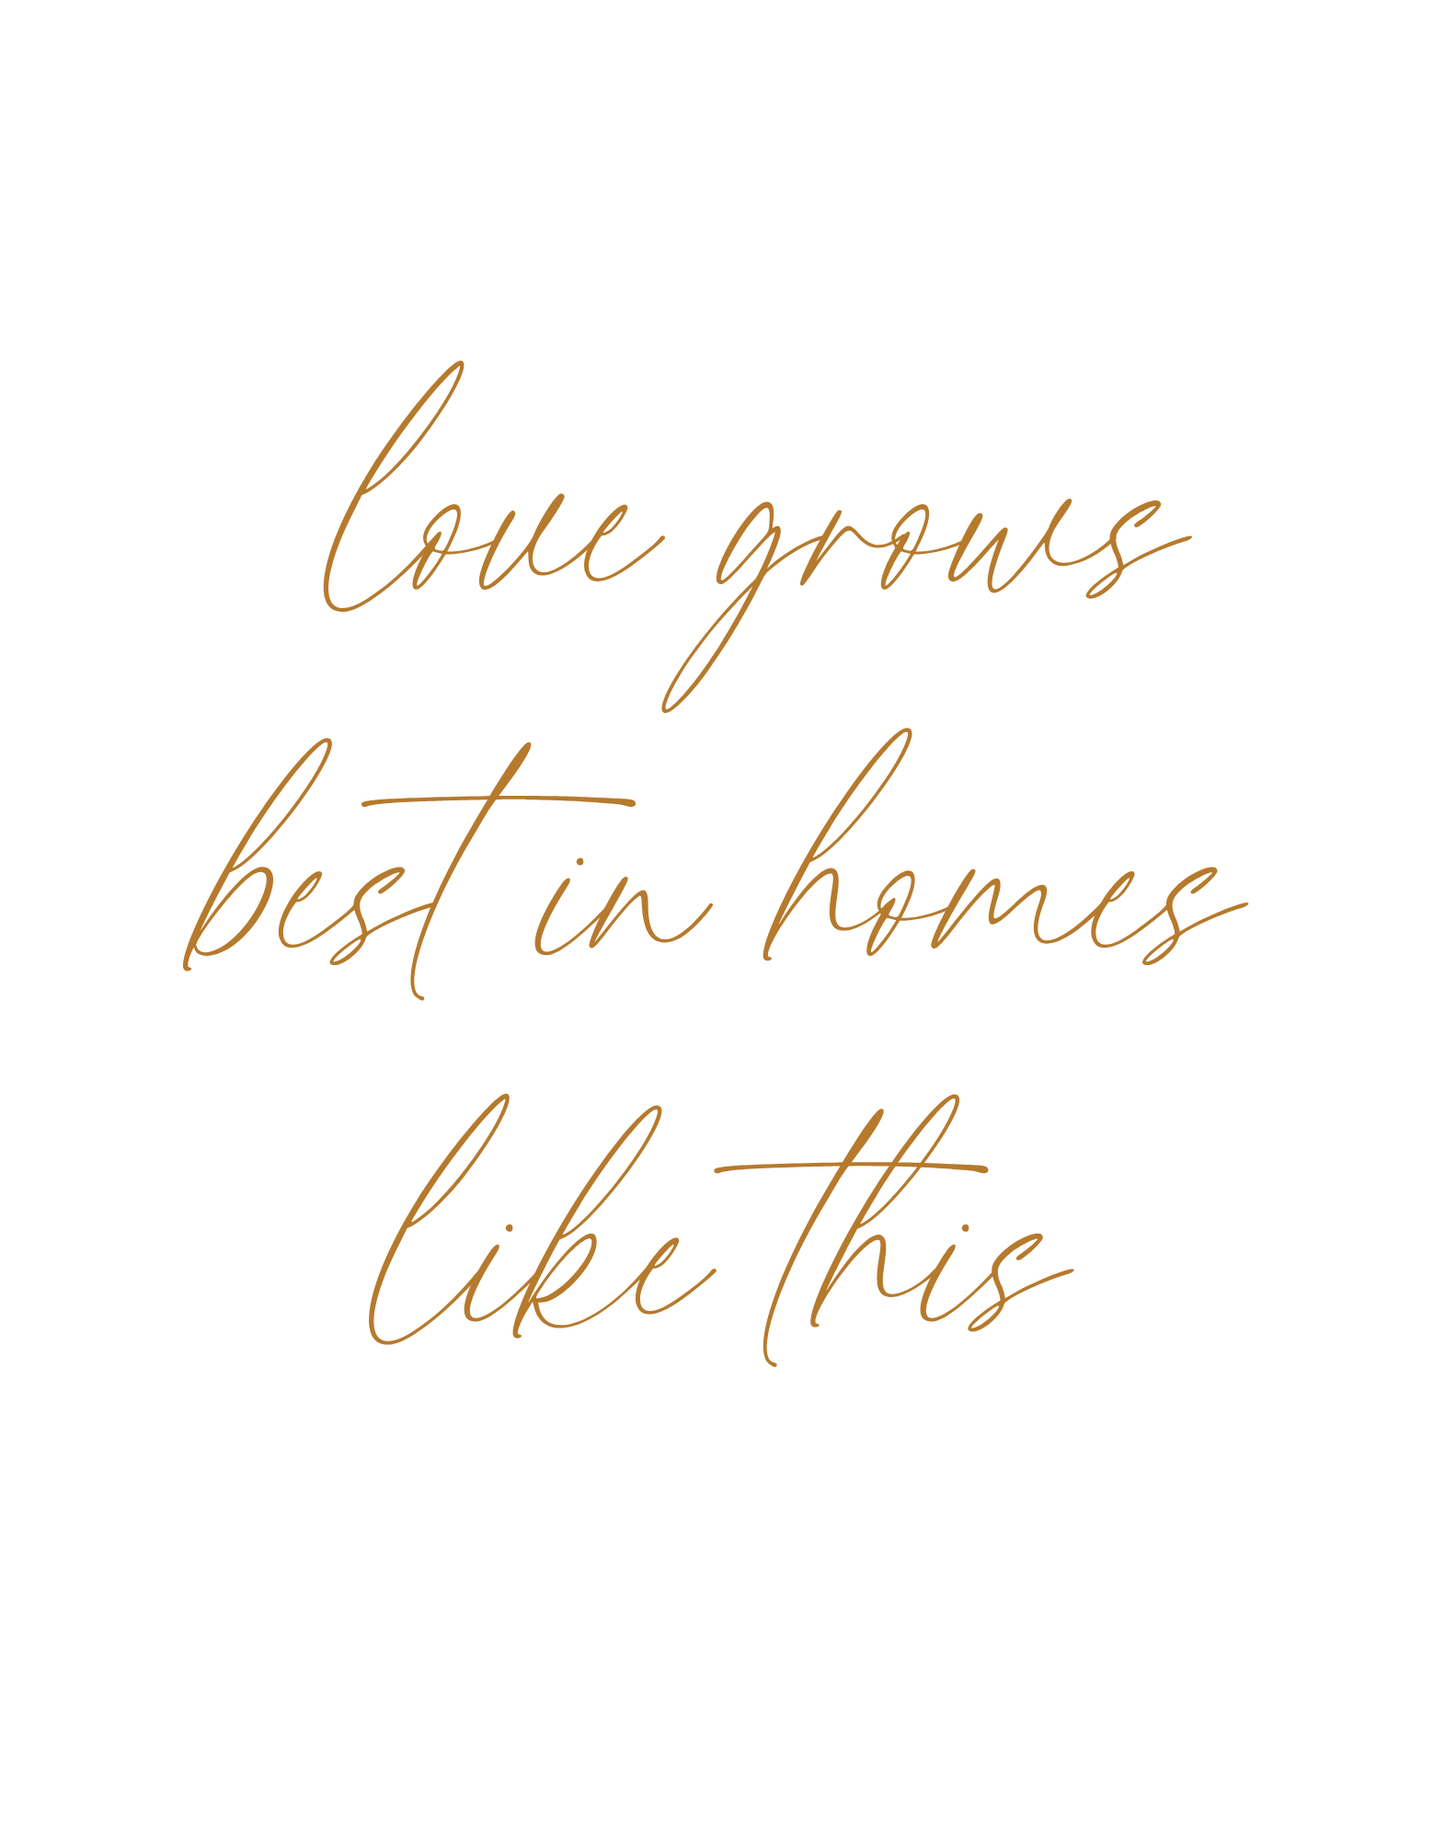 love grows
best in homes
like this